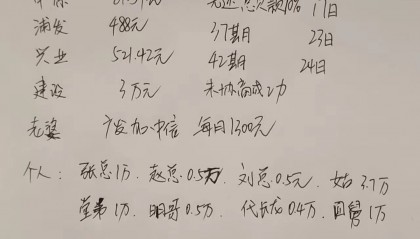 元 先还总欠款10% 17日
浦发 488元 37期 23日
兴业 521.42元 42期 24日
建设 3万元 未协商成功
老婆 广发加中信 每月1300元
个人： 张总1万、赵总0.5万、刘总0.5元、姑3.7万
堂弟1万、明哥0.5万、代长龙0.4万、舅1万